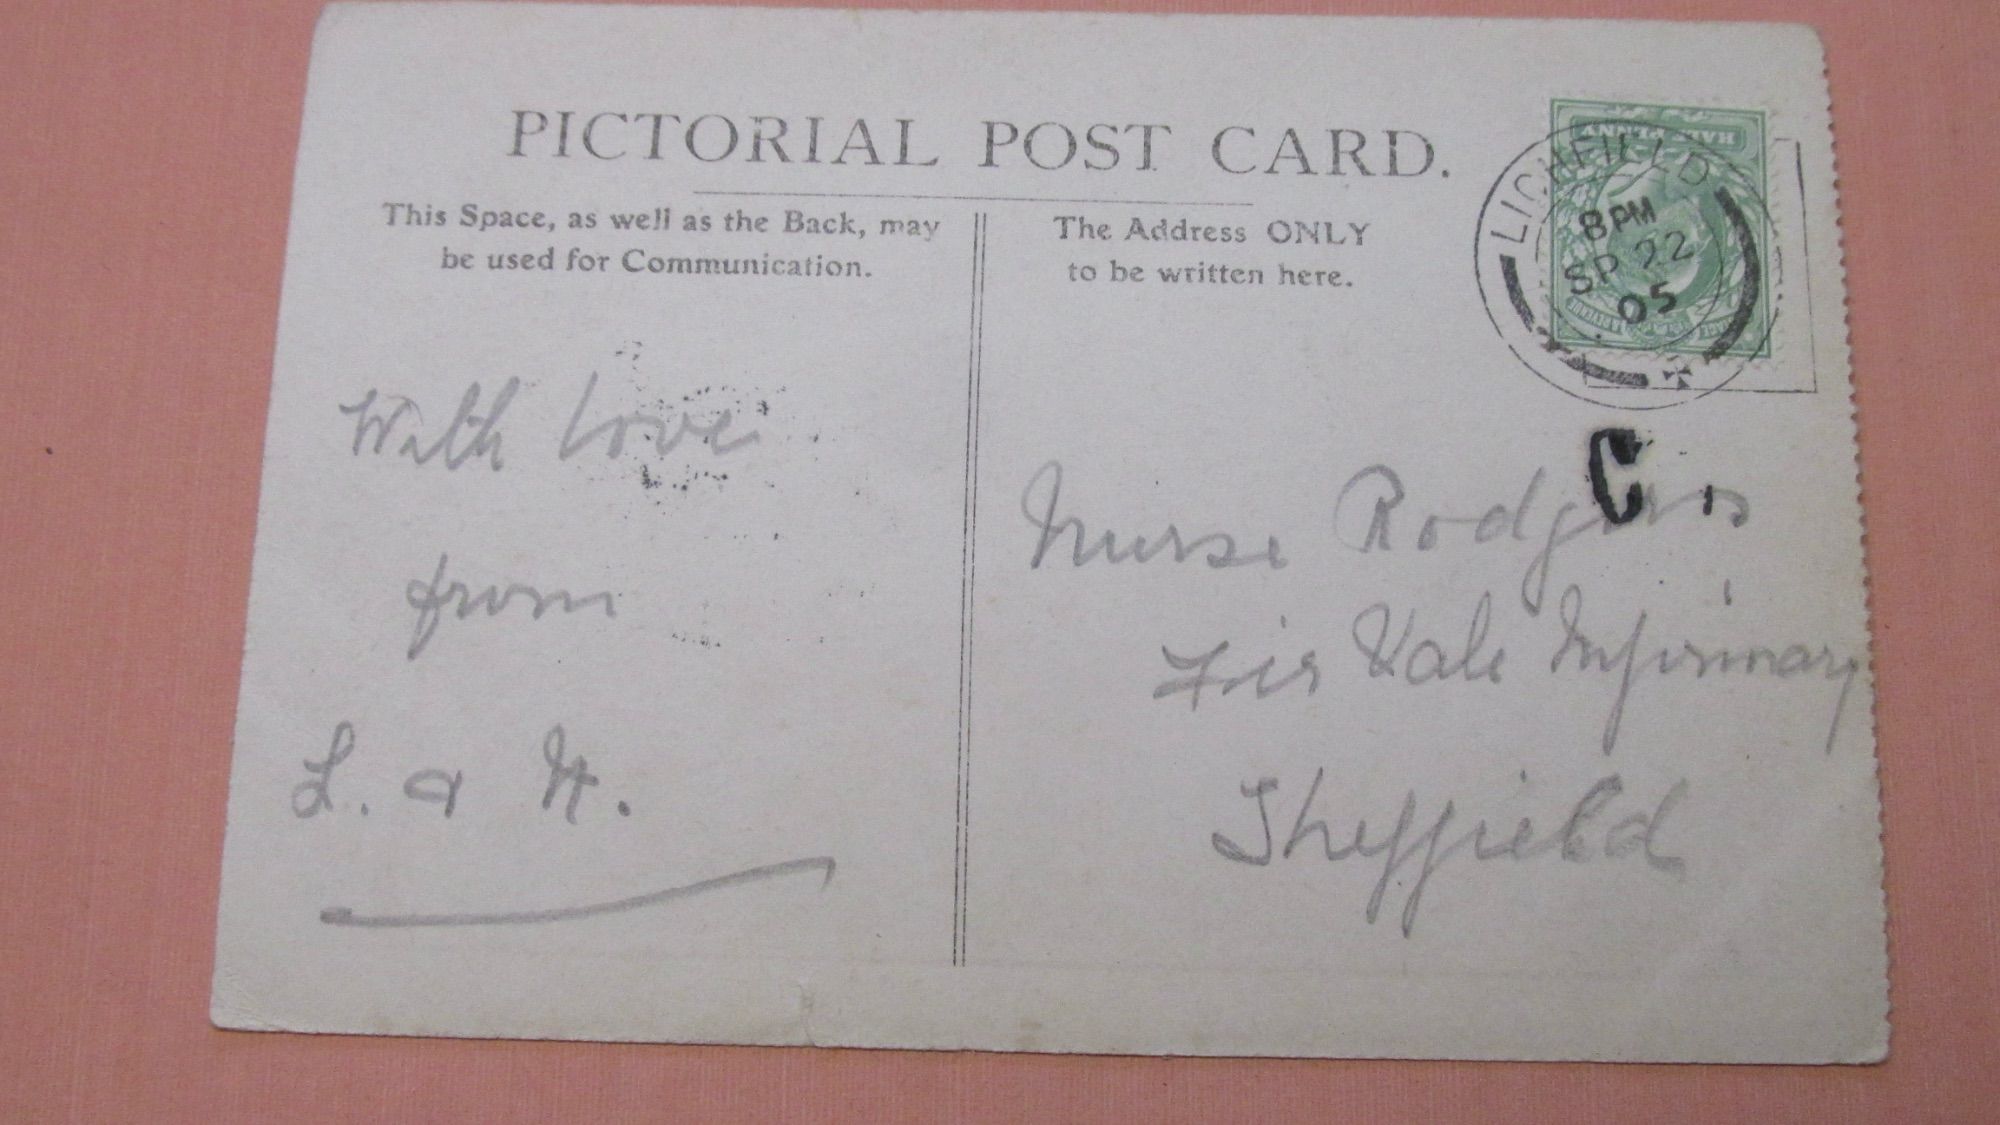 PICTORIAL POST CARD.
This Space, as well as the Back, may
be used for Communication.
The Address ONLY
to be written here.
HALF PENNY
LICHFIELD
8 PM
SP 22
05
With love
from
L. &
C
Nurse Rodgers
Fir Vale Infirmary
Sheffield